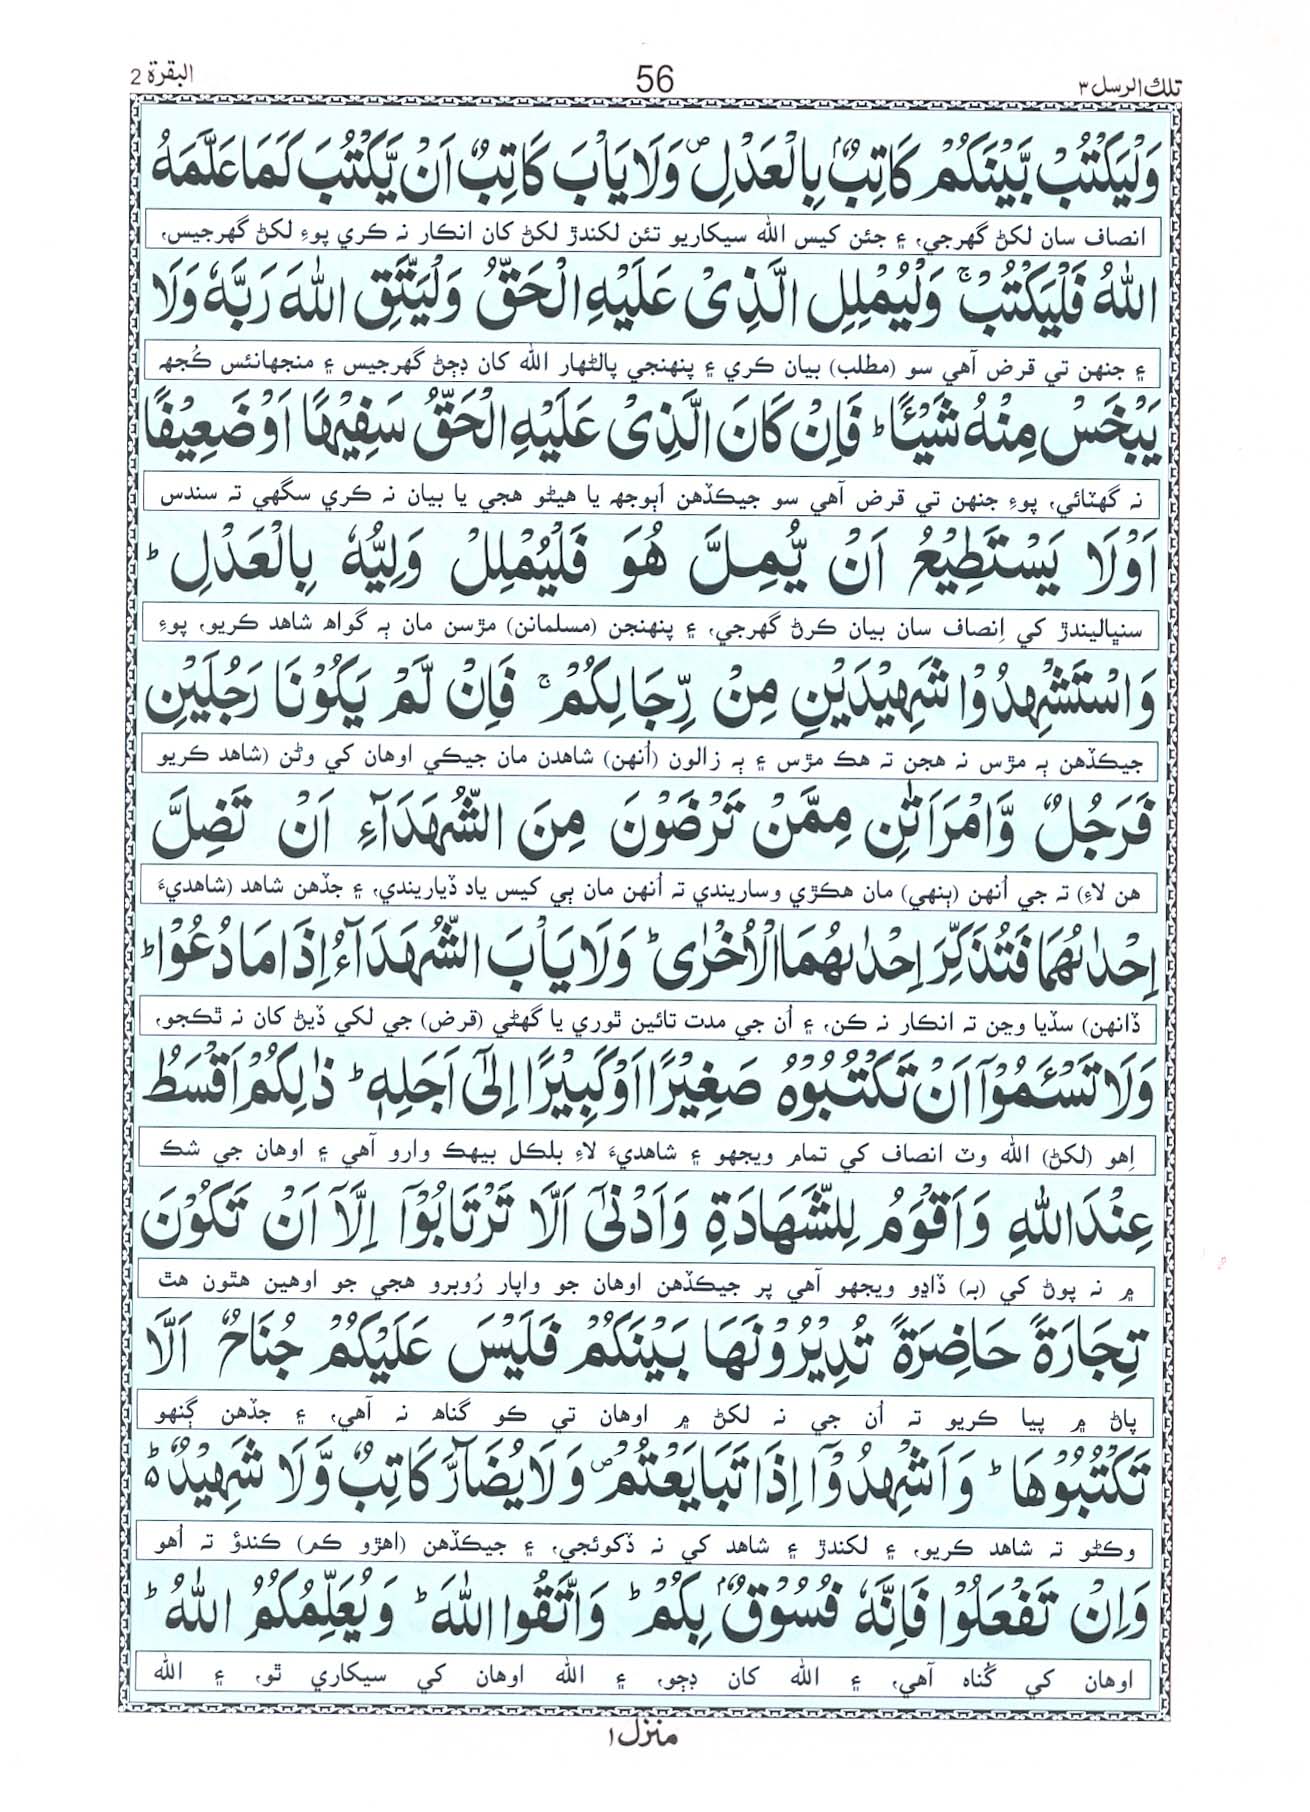 تلك الرسل ٣
56
البقرة 2
وَلْيَكْتُبْ بَّيْنَكُمْ كَاتِبٌۢ بِالْعَدْلِ ۪ وَلَا يَاْبَ كَاتِبٌ اَنْ يَّكْتُبَ كَمَا عَلَّمَهُ
انصاف سان لکڻ گهرجي، ۽ جئن کيس الله سيکاريو تئن لکندڙ لکڻ کان انکار نہ ڪري پوءِ لکڻ گهرجيس،
اللّٰهُ فَلْيَكْتُبْ ۚ وَلْيُمْلِلِ الَّذِىْ عَلَيْهِ الْحَقُّ وَلْيَتَّقِ اللّٰهَ رَبَّهٗ وَلَا
۽ جنهن تي قرض آهي سو (مطلب) بيان ڪري ۽ پنهنجي پالڻهار الله کان ڊڄڻ گهرجيس ۽ منجهانئس ڪُجهہ
يَبْخَسْ مِنْهُ شَيْـًٔا ؕ فَاِنْ كَانَ الَّذِىْ عَلَيْهِ الْحَقُّ سَفِيْهًا اَوْ ضَعِيْفًا
نہ گهٽائي، پوءِ جنهن تي قرض آهي سو جيڪڏهن اَٻوجهہ يا هيڻو هجي يا بيان نہ ڪري سگهي تہ سندس
اَوْ لَا يَسْتَطِيْعُ اَنْ يُّمِلَّ هُوَ فَلْيُمْلِلْ وَلِيُّهٗ بِالْعَدْلِ ؕ
سنڀاليندڙ کي اِنصاف سان بيان ڪرڻ گهرجي، ۽ پنهنجن (مسلمانن) مڙسن مان ٻہ گواهہ شاهد ڪريو، پوءِ
وَاسْتَشْهِدُوْا شَهِيْدَيْنِ مِنْ رِّجَالِكُمْ ۚ فَاِنْ لَّمْ يَكُوْنَا رَجُلَيْنِ
جيڪڏهن ٻہ مڙس نہ هجن تہ هڪ مڙس ۽ ٻہ زالون (اُنهن) شاهدن مان جيڪي اوهان کي وڻن (شاهد ڪريو
فَرَجُلٌ وَّامْرَاَتٰنِ مِمَّنْ تَرْضَوْنَ مِنَ الشُّهَدَآءِ اَنْ تَضِلَّ
هن لاءِ) تہ جي اُنهن (ٻنهي) مان هڪڙي وساريندي تہ اُنهن مان ٻي کيس ياد ڏياريندي، ۽ جڏهن شاهد (شاهديءَ
اِحْدٰىهُمَا فَتُذَكِّرَ اِحْدٰىهُمَا الْاُخْرٰى ؕ وَلَا يَاْبَ الشُّهَدَآءُ اِذَا مَا دُعُوْا ؕ
ڏانهن) سڏيا وڃن تہ انکار نہ ڪن، ۽ اُن جي مدت تائين ٿوري يا گهڻي (قرض) جي لکي ڏيڻ کان نہ ٿڪجو،
وَلَا تَسْـَٔمُوْۤا اَنْ تَكْتُبُوْهُ صَغِيْرًا اَوْ كَبِيْرًا اِلٰٓى اَجَلِهٖ ؕ ذٰلِكُمْ اَقْسَطُ
اِهو (لکڻ) الله وٽ انصاف کي تمام ويجهو ۽ شاهديءَ لاءِ بلڪل بيهڪ وارو آهي ۽ اوهان جي شڪ
عِنْدَ اللّٰهِ وَاَقْوَمُ لِلشَّهَادَةِ وَاَدْنٰٓى اَلَّا تَرْتَابُوْۤا اِلَّاۤ اَنْ تَكُوْنَ
۾ نہ پوڻ کي (بہ) ڏاڍو ويجهو آهي پر جيڪڏهن اوهان جو واپار رُوبرو هجي جو اوهين هٿون هٿ
تِجَارَةً حَاضِرَةً تُدِيْرُوْنَهَا بَيْنَكُمْ فَلَيْسَ عَلَيْكُمْ جُنَاحٌ اَلَّا
پاڻ ۾ پيا ڪريو تہ اُن جي نہ لکڻ ۾ اوهان تي ڪو گناهہ نہ آهي، ۽ جڏهن ڳنهو
تَكْتُبُوْهَا ؕ وَاَشْهِدُوْۤا اِذَا تَبَايَعْتُمْ ۪ وَلَا يُضَآرَّ كَاتِبٌ وَّلَا شَهِيْدٌ ؕ۬
وڪڻو تہ شاهد ڪريو، ۽ لکندڙ ۽ شاهد کي نہ ڏکوئجي، ۽ جيڪڏهن (اهڙو ڪم) ڪندؤ تہ اُهو
وَاِنْ تَفْعَلُوْا فَاِنَّهٗ فُسُوْقٌۢ بِكُمْ ؕ وَاتَّقُوا اللّٰهَ ؕ وَيُعَلِّمُكُمُ اللّٰهُ ؕ
اوهان کي گُناهہ آهي، ۽ الله کان ڊڄو، ۽ الله اوهان کي سيکاري ٿو، ۽ الله
منزل ١